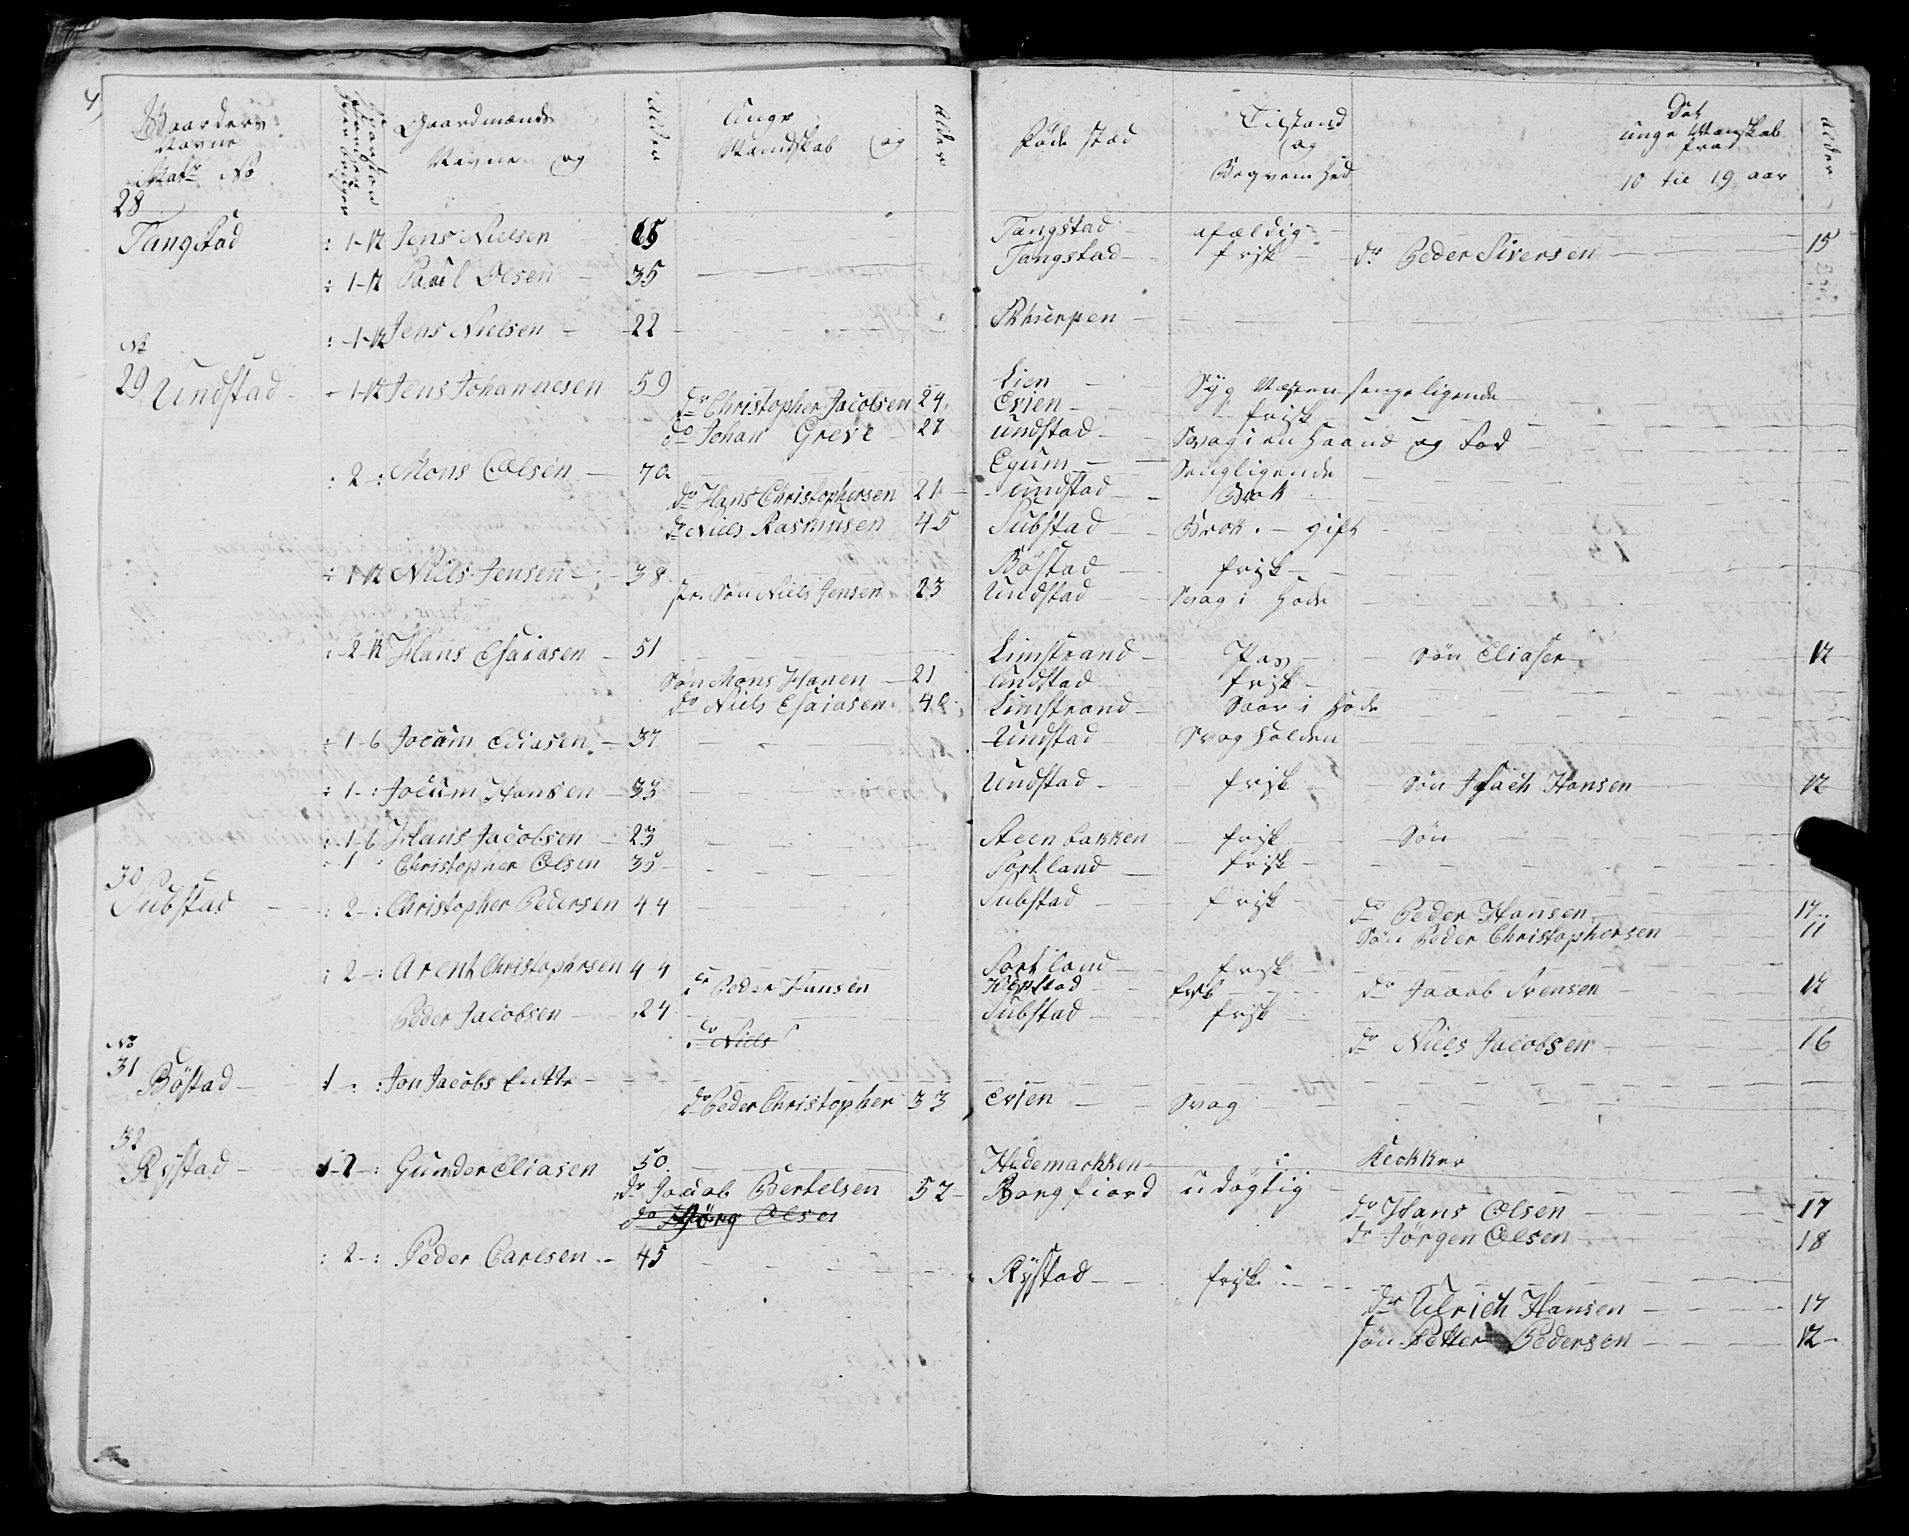 4
Gaarders Navne Matr No
Gaardmænds Navne og
Alder
Unge Mandskab og
Alder
Føde stad
Tilstand og Beqvem hed
Det unge Manskab fra 10 til 19 aar
Alder
28
Tangstad : 1-12 Jens Nielsen 65 Tangstad
: 1-12 Paul Olsen 35 Tangstad frisk do Peder Siversen 15
: 1-12 Jens Nielsen 22
No
29 Undstad 1-12 Jens Johannesen 59 Lien Syg sengeligende
do Christopher Jacobsen 24 Evien frisk
do Johan Greve 27 undstad Svag i en Haand og Fod
: 2 : Mons Olsen 70 Egum Sengligende
do Hans Christophersen 21 undstad Brok
do Niels Rasmusen 45 Substad Brok gift
: 1-12 Niels Jensen 38 Böstad frisk
Søn Niels Jensen 23 Undstad Svag i Hode
: 2-12 Hans Esaiasen 51 Limstrand Søn Eliaser 12
Søn Mons Hanen 21 Undstad frisk
do Niels Esaiasen Limstrand Saar i Hode
: 1-6 Jocum Eliasen 37 Undstad Svag
: 1 - : Jocum Hansen 33 Undstad frisk Søn Isach Hansen 12
: 1-6 Hans Jacobsen 23 Steen bakken frisk Søn
1 : Christopher Olsen 35 Portland frisk
30
Substad : 2 - : Christopher Pedersen 44 Substad frisk
do Peder Hansen 17
Søn Peder Christophersen 11
: 2 - : Arent Christophersen 44 Portland frisk
do Peder Hansen do Jacob Svensen 12
Peder Jacobsen 24 Substad frisk
do Niels
do Niels Jacobsen 16
No
31 Böstad 1 - : Jon Jacobs Enke
do Peder Christopher 33 Evien Svag
32
Rystad 1-2 - : Gunder Eliasen 50 Hedemarkken
do Jacob Bertelsen 52 Borgfiord udøgtig
do Jörg Olsen
do Hans Olsen 17
do Jörgen Olsen 18
: 2 - : Peder Carlsen 45 Rystad frisk
do Ulrich Hansen 17
Søn Petter Pedersen 12